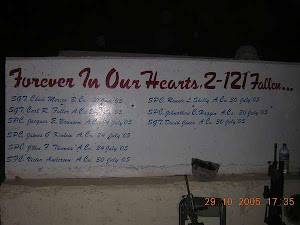 Forever In Our Hearts, 2-121 Fallen...
SGT. Chad Mercer B Co. July 05
SGT. Carl R. Fuller A Co. 24 July 05
SPC. Jacques B. Brunson A Co. 24 July 05
SPC. James O Kinlow A Co. 24 July 05
SPC. John F Thomas A Co. 24 July 05
SFC. Victor Anderson A Co. 30 July 05
SPC. Ronnie L. Shelley A Co. 30 July 05
SPC. Jonathon C. Haggin A Co. 30 July 05
SGT. David Jones A Co. 30 July 05
29.10.2005 17:35